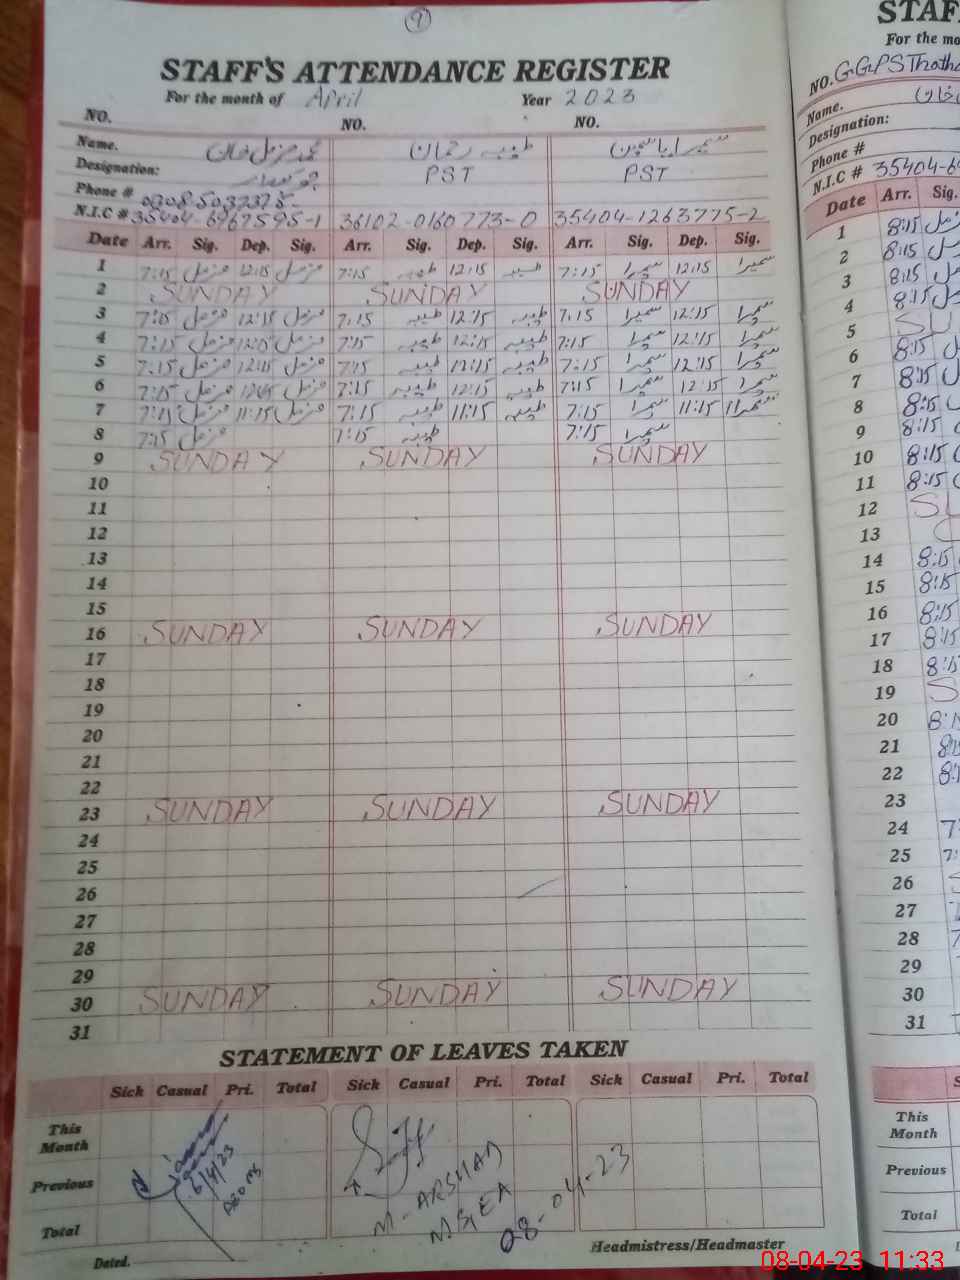 9
STAFF'S ATTENDANCE REGISTER
For the month of April Year 2023
NO. NO. NO.
Name. محمد مزمل خان طیبہ رحمان سمیرا یاسمین
Designation: چوکیدار PST PST
Phone #
N.I.C # 35404-6967595-1 36102-0160773-0 35404-1263775-2
Date Arr. Sig. Dep. Sig. Arr. Sig. Dep. Sig. Arr. Sig. Dep. Sig.
1 7:15 مزمل 12:15 مزمل 7:15 طیبہ 12:15 طیبہ 7:15 سمیرا 12:15 سمیرا
2 SUNDAY SUNDAY SUNDAY
3 7:15 مزمل 12:15 مزمل 7:15 طیبہ 12:15 طیبہ 7:15 سمیرا 12:15 سمیرا
4 7:15 مزمل 12:15 مزمل 7:15 طیبہ 12:15 طیبہ 7:15 سمیرا 12:15 سمیرا
5 7:15 مزمل 12:15 مزمل 7:15 طیبہ 12:15 طیبہ 7:15 سمیرا 12:15 سمیرا
6 7:15 مزمل 12:15 مزمل 7:15 طیبہ 12:15 طیبہ 7:15 سمیرا 12:15 سمیرا
7 7:15 مزمل 11:15 مزمل 7:15 طیبہ 11:15 طیبہ 7:15 سمیرا 11:15 سمیرا
8 7:15 مزمل 7:15 طیبہ 7:15 سمیرا
9 SUNDAY SUNDAY SUNDAY
10
11
12
13
14
15
16 SUNDAY SUNDAY SUNDAY
17
18
19
20
21
22
23 SUNDAY SUNDAY SUNDAY
24
25
26
27
28
29
30 SUNDAY SUNDAY SUNDAY
31
STATEMENT OF LEAVES TAKEN
Sick Casual Pri. Total Sick Casual Pri. Total Sick Casual Pri. Total
This Month
Previous
Total
6/4/23
M. ARSHAD
MBEA
08-04-23
Dated. Headmistress/Headmaster
STAF
For the mo
NO. GGPS
Name. خان
Designation:
Phone #
N.I.C # 35404-6
Date Arr. Sig.
1 8:15
2 8:15
3 8:15
4 8:15
5 SU
6 8:15
7 8:15
8 8:15
9 8:15
10 8:15
11 8:15
12 SU
13
14 8:15
15 8:15
16 8:15
17 8:15
18 8:15
19 S
20 8:15
21 8:15
22 8:1
23
24 7:
25 7:
26 S
27
28 7
29
30
31
S
This Month
Previous
Total
08-04-23 11:33